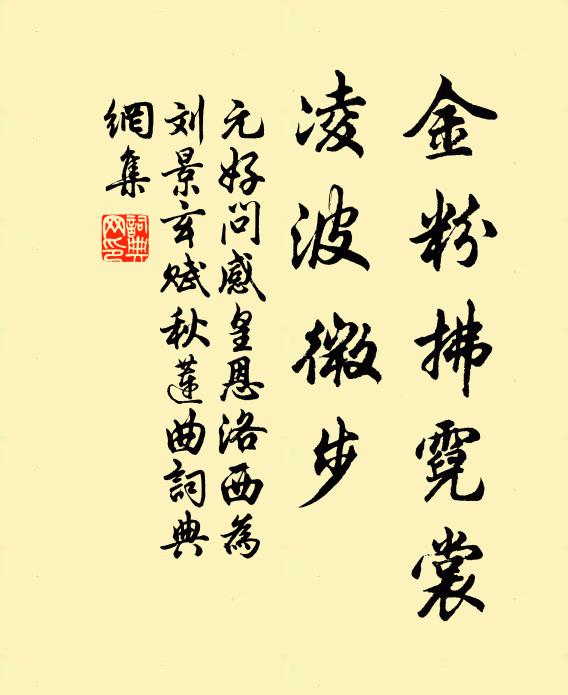 金粉拂霓裳
凌波微步
元好问感皇恩洛西為
刘景玄赋秋蓮曲詞典
網集
詞典
网印